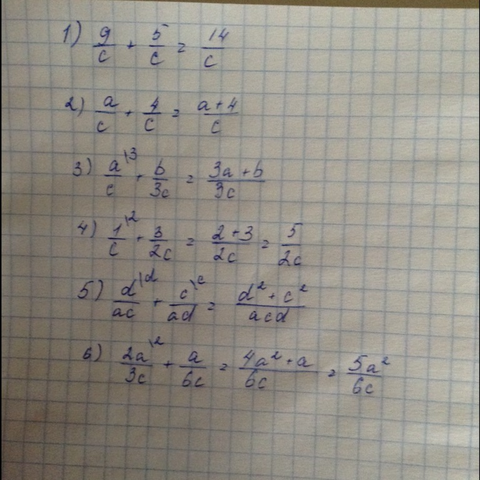 1) 9/c + 5/c = 14/c
2) a/c + 4/c = a+4/c
3) a\3/c + b/3c = 3a+b/3c
4) 1\2/c + 3/2c = 2+3/2c = 5/2c
5) d\d/ac + c\c/ad = d²+c²/acd
6) 2a\2/3c + a/6c = 4a²+a/6c = 5a²/6c